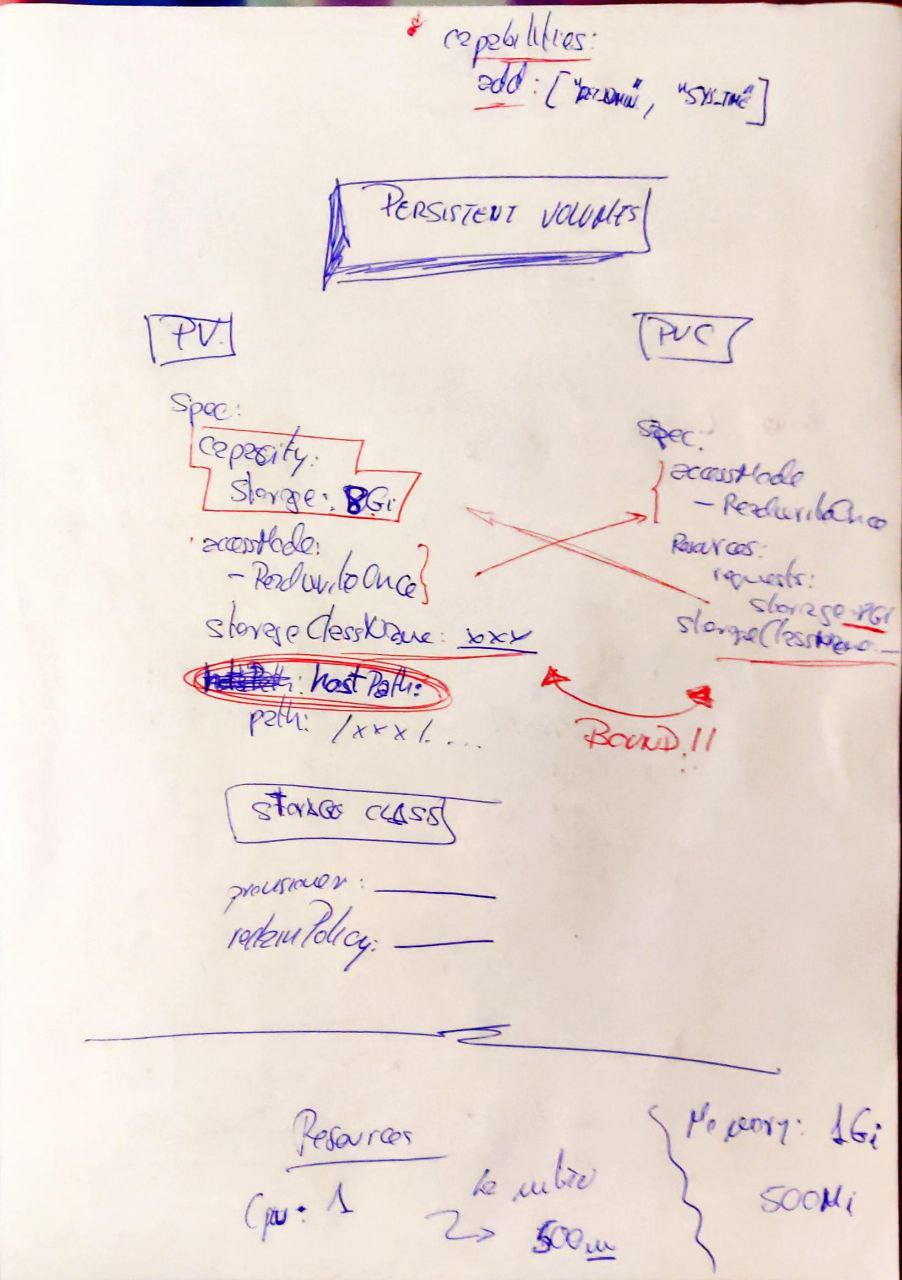 capabilities:
add: ["NET_ADMIN", "SYS_TIME"]
PERSISTENT VOLUMES
PV
Spec:
capacity:
Storage: 8Gi
accessMode:
- ReadWriteOnce
storageClassName: xxx
hostPath:
path: /xxx/....
PVC
Spec:
accessMode
- ReadWriteOnce
Resources:
requests:
storage: 8Gi
storageClassName: __
BOUND!!
STORAGE CLASS
provisioner: ____
reclaimPolicy: ____
Resources
Cpu: 1
500m
Memory: 1Gi
500Mi